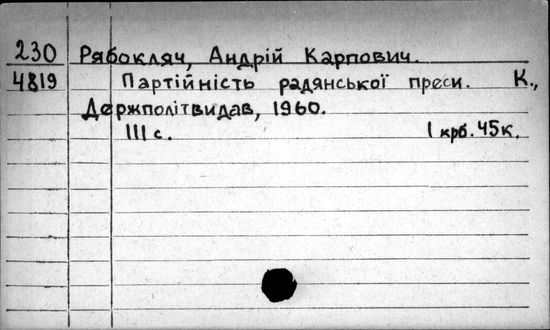 230 Рябокляч, Андрій Карпович.
4819 Партійність радянської преси. К.,
Держполітвидав, 1960.
111 с. 1 крб. 45к.